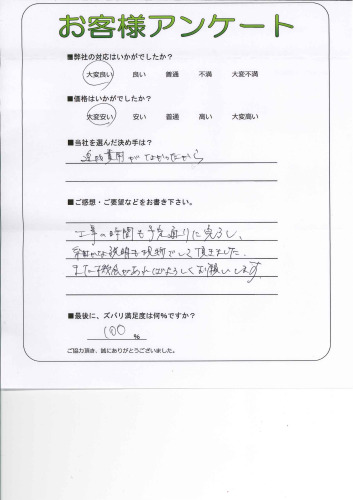 お客様アンケート
■弊社の対応はいかがでしたか？
大変良い 良い 普通 不満 大変不満
■価格はいかがでしたか？
大変安い 安い 普通 高い 大変高い
■当社を選んだ決め手は？
費用がなかったから
■ご感想・ご要望などをお書き下さい。
工事の時間も予定通りに完了し、
細かな説明も現物でして頂きました。
また機会があればよろしくお願いします。
■最後に、ズバリ満足度は何%ですか？
100 %
ご協力頂き、誠にありがとうございました。